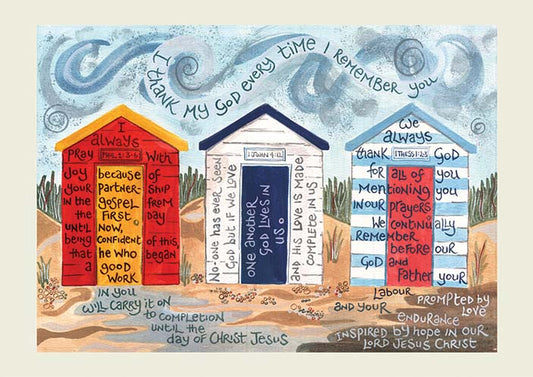 I thank my God every time I remember you
I
always
pray PHIL. 1:3-6 with
joy because of
your partner- ship
in the gospel from
the first day
until now, of this,
being confident
that he who began
a good work
in you
will carry it on
to completion
until the
day of Christ Jesus
1 JOHN 4:12
No-one has ever seen
God but if we love
one another
God lives in
us.
and his love is made
complete in us
We
always
thank 1 THESS 1:2-3 God
for all of you
mentioning you
in our prayers
We continually
remember
before our
God and Father your
labour
and your
prompted by
love
endurance
inspired by hope in our
Lord Jesus Christ